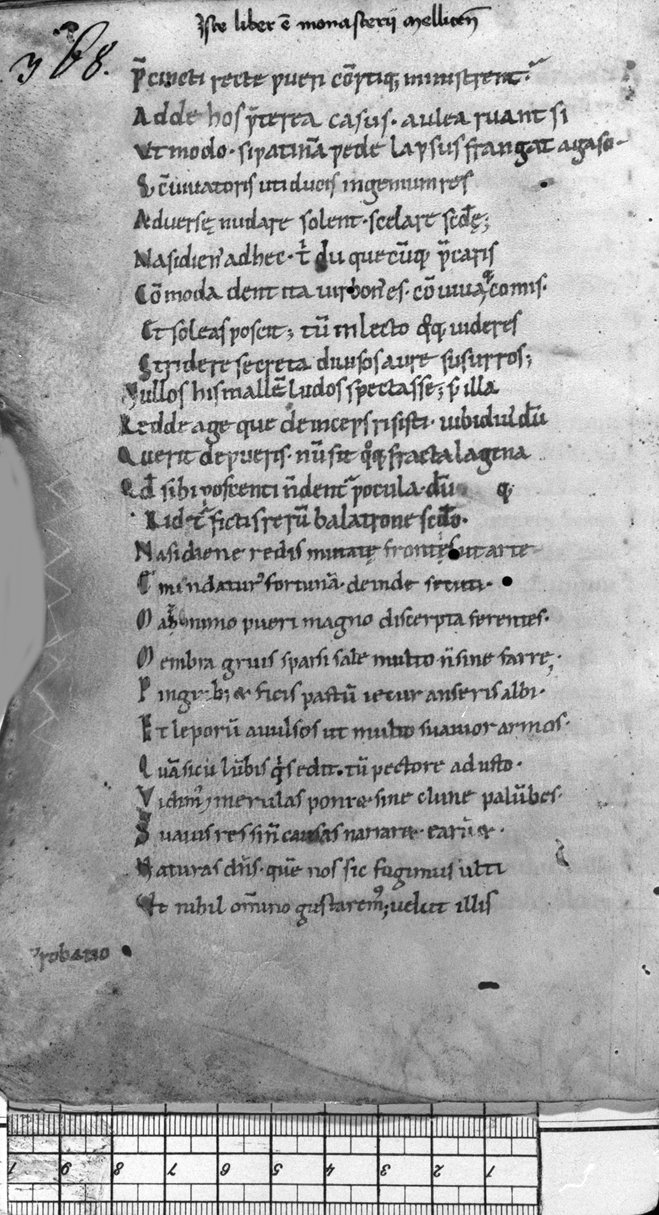 Iste liber ē monasterii Mellicen̄
368.
P̄cincti recte pueri cōptiq; ministrent.
Adde hos p̄terea casus. aulea ruant si
Ut modo. si patinā pede lapsus frangat agaso.
S; c̄uiuatoris uti ducis ingenium res
Aduersę nudare solent. celare scđę;
Nasidien' ad hec. t' đ quecūq; p̄caris
Cōmoda dent ita uir bon' es. cōuiuaq; comis.
Et soleas poscit; tū in lecto q̊q; uideres
Stridere secreta diuisos aure susurros;
Nullos his mallē ludos spectasse; s; illa
Redde age que deinceps risisti. uibidi' dū
Querit de pueris. nū sit q̊q; fracta lagena
Qđ sibi poscenti n̄ dent' pocula. dū q;
Ridet' fictis rerū balatrone scđo.
Nasidiene redis mutatę frontis ut arte
Em̄ndatur' fortunā. deinde secuti.
Mazonomo pueri magno discerpta ferentes.
Membra gruis sparsi sale multo n̄ sine farre;
Pinguib; & ficis pastū iecur anseris albi.
Et leporū auulsos ut multo suauior armos.
Quā si cū lūbis q's edit. tū pectore adusto.
Vidim' & merulas poni & sine clune palūbes.
Suauis res si n̄ causas narrar& earū &.
Naturas dn̄s. quē nos sic fugimus ulti
Ut nihil om̄ino gustarem'; uelut illis
Probatio
1 2 3 4 5 6 7 8 9